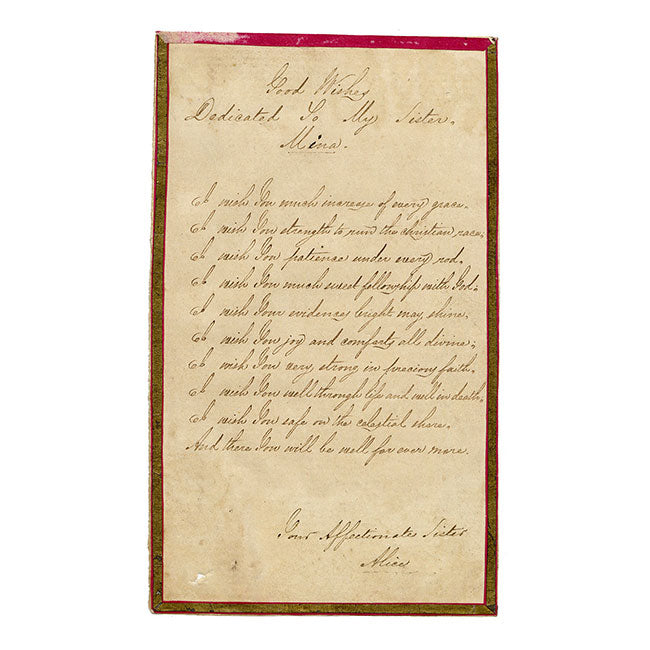 Good Wishes
Dedicated To My Sister.
Mina.
I wish You much increase of every grace.
I wish You strength to run the christian race.
I wish You patience under every rod.
I wish You much sweet fellowship with God.
I wish Your evidences bright may shine.
I wish You joy and comforts all divine.
I wish You very strong in precious faith.
I wish You well through life and well in death.
I wish You safe on the celestial shore.
And there You will be well for ever more.
Your Affectionate Sister
Alice